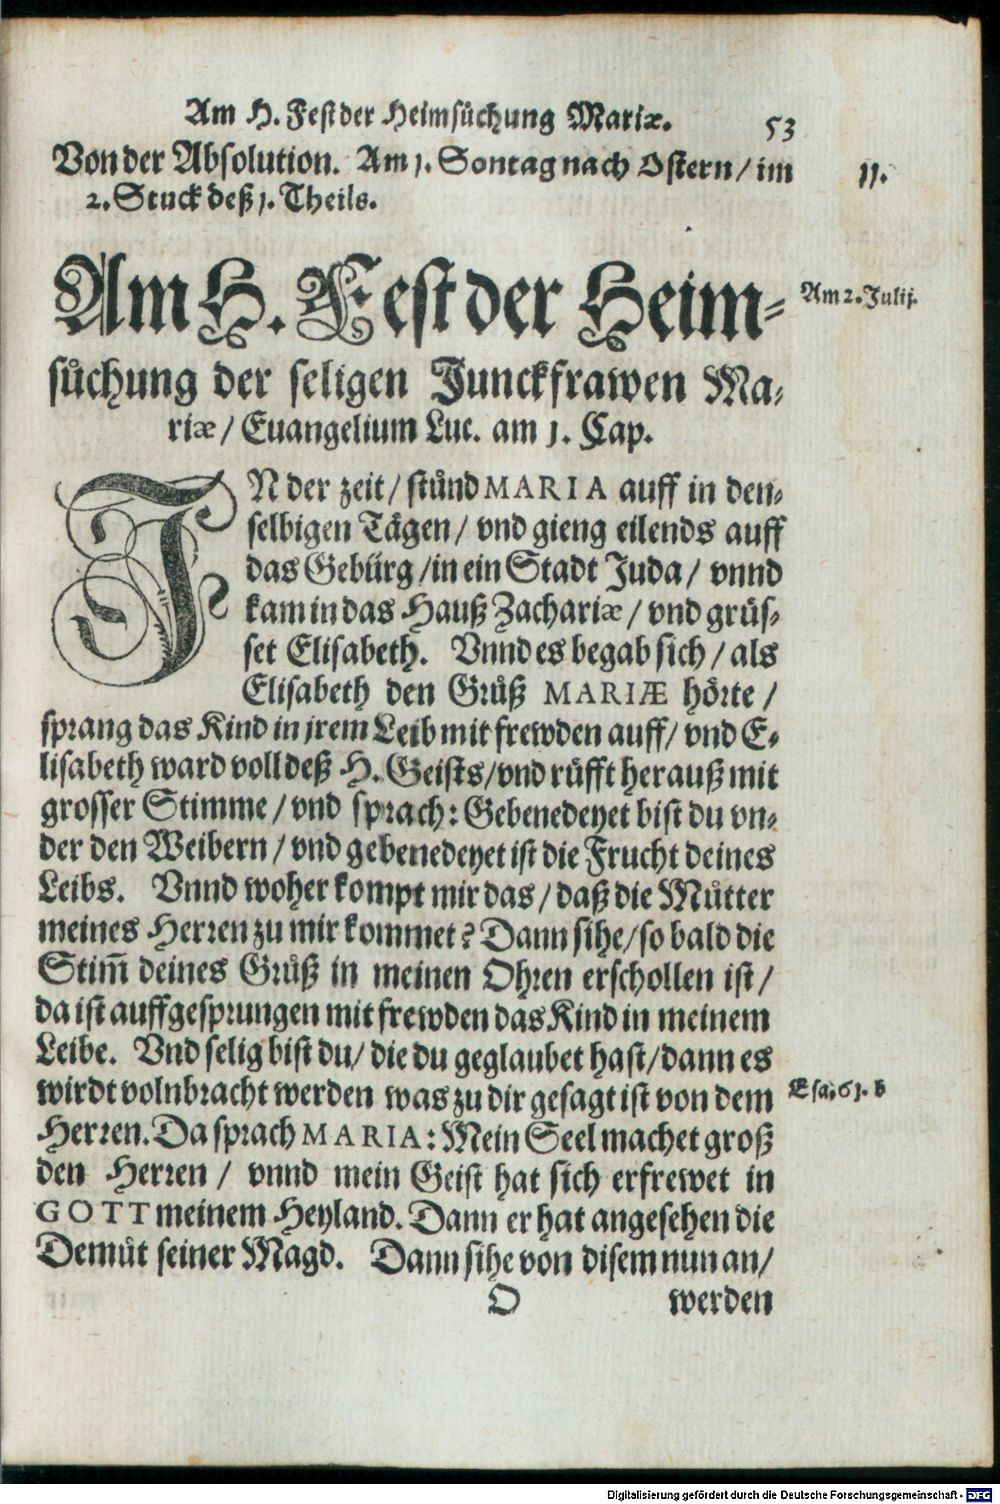 Am H. Fest der Heimsůchung Mariæ. 53
Von der Absolution. Am 1. Sontag nach Ostern / im 11.
2. Stuck deß 1. Theils.
Am H. Fest der Heim- Am 2. Julij.
sůchung der seligen Junckfrawen Ma-
riæ / Euangelium Luc. am 1. Cap.
IN der zeit / stůnd MARIA auff in den-
selbigen Tägen / vnd gieng eilends auff
das Gebürg / in ein Stadt Juda / vnnd
kam in das Hauß Zachariæ / vnd grüs-
set Elisabeth. Vnnd es begab sich / als
Elisabeth den Grůß MARIÆ hörte /
sprang das Kind in jrem Leib mit frewden auff / vnd E-
lisabeth ward voll deß H. Geists / vnd rüfft herauß mit
grosser Stimme / vnd sprach: Gebenedeyet bist du vn-
der den Weibern / vnd gebenedeyet ist die Frucht deines
Leibs. Vnnd woher kompt mir das / daß die Můtter
meines Herren zu mir kommet? Dann sihe / so bald die
Stim̃ deines Grůß in meinen Ohren erschollen ist /
da ist auffgesprungen mit frewden das Kind in meinem
Leibe. Vnd selig bist du / die du geglaubet hast / dann es
wirdt volnbracht werden was zu dir gesagt ist von dem Esa. 61. b
Herren. Da sprach MARIA: Mein Seel machet groß
den Herren / vnnd mein Geist hat sich erfrewet in
GOTT meinem Heyland. Dann er hat angesehen die
Demůt seiner Magd. Dann sihe von disem nun an /
O werden
Digitalisierung gefördert durch die Deutsche Forschungsgemeinschaft - DFG